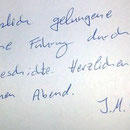 zlich gelungene
ne Führung durch
eschichte. Herzlichen
nen Abend.
J.M.